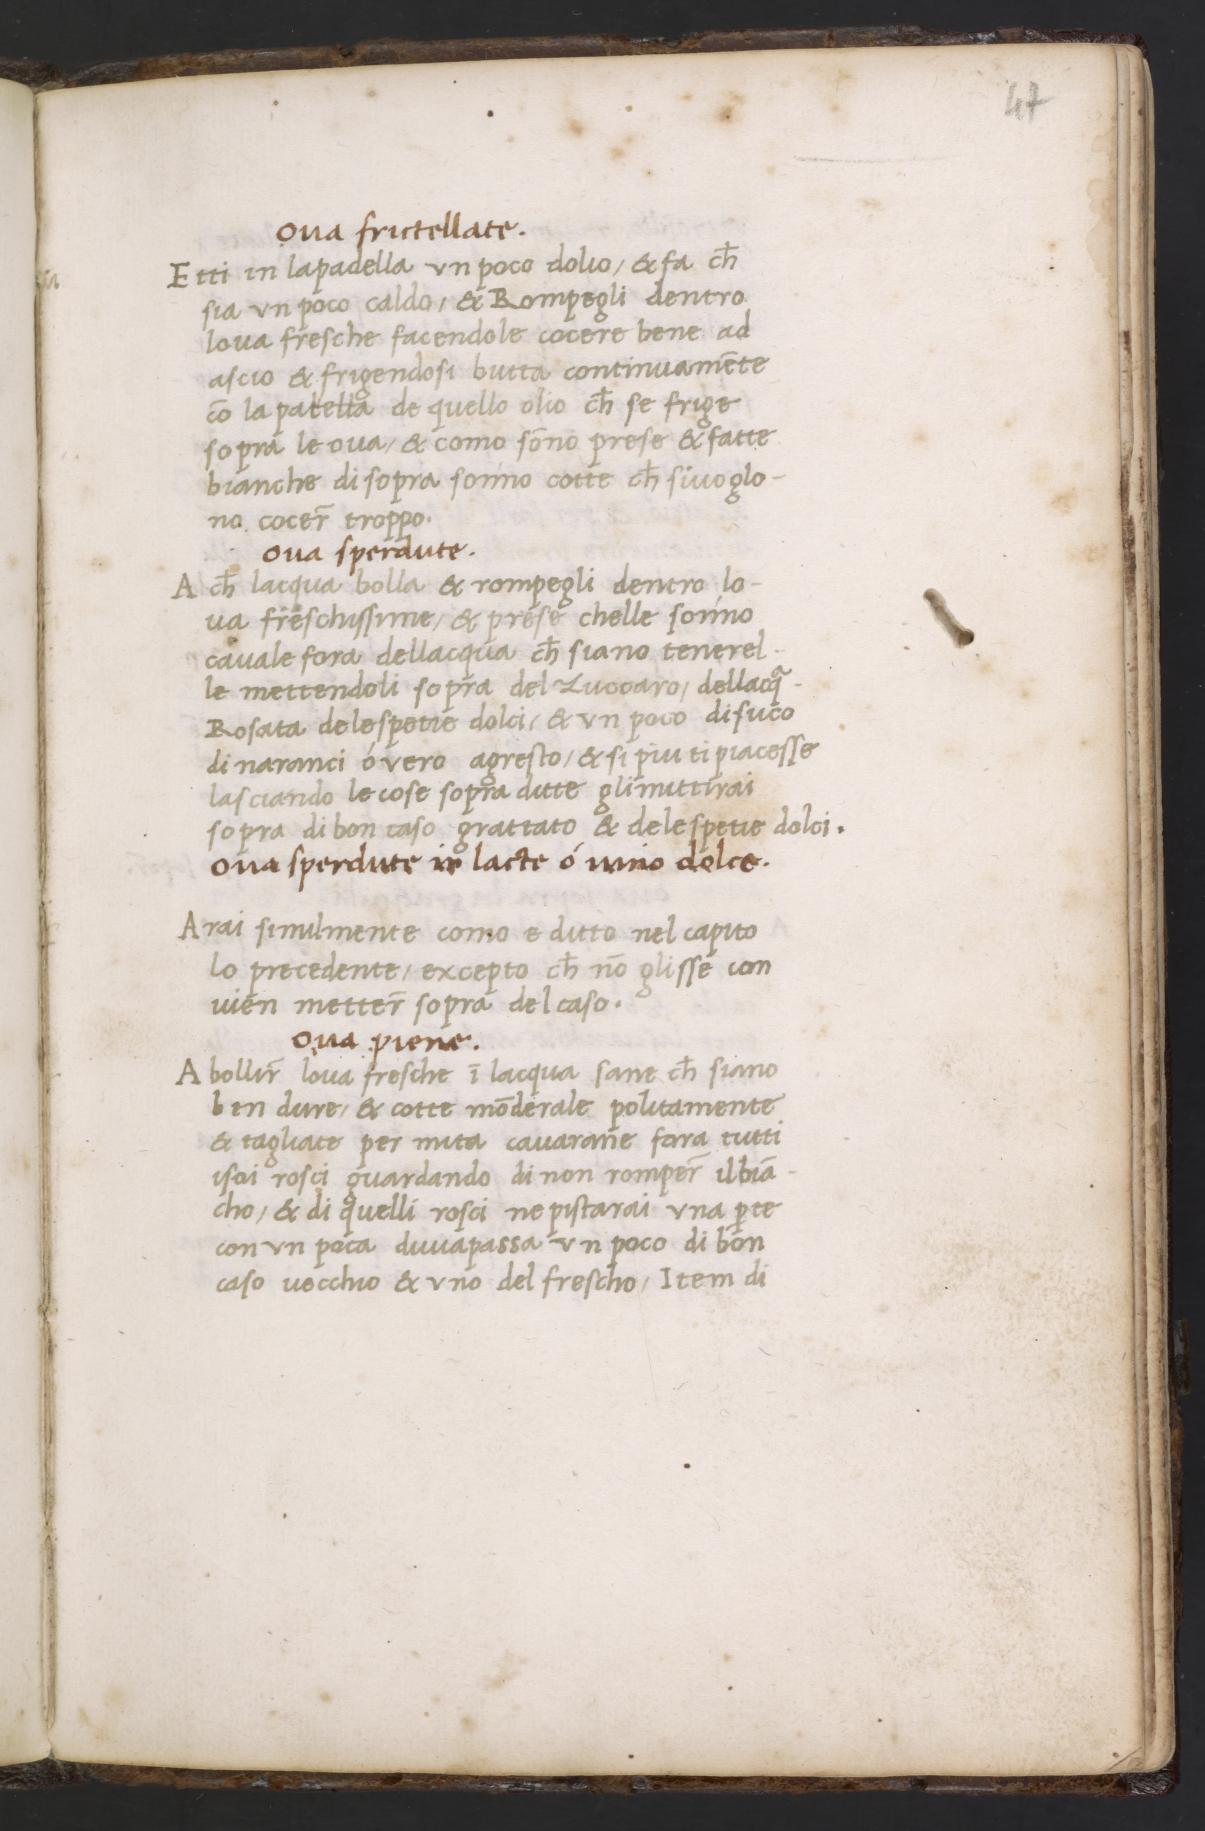 47
Oua frictellate.
Etti in lapadella vn poco dolio, & fa ch̄
sia vn poco caldo, & Rompegli dentro
loua fresche facendole cocere bene ad
ascio & frigendosi butta continuamēte
cō la patella de quello olio ch̄ se frige
sopra le oua, & como sōno prese & fatte
bianche di sopra sonno cotte ch̄ si uoglo-
no cocer̄ troppo.
Oua sperdute.
A ch̄ lacqua bolla & rompegli dentro lo-
ua freschissime, & prese chelle sonno
cauale fora dellacqua ch̄ siano tenerel-
le mettendoli sopra del Zuccaro, dellacq̄a-
Rosata delespetie dolci, & vn poco di suco
di naranci ó vero agresto, & si piu ti piacesse
lasciando le cose sopra ditte gli mittirai
sopra di bon caso grattato & delespetie dolci.
Oua sperdute in lacte ó uino dolce.
Arai similmente como e ditto nel capito
lo precedente, excepto ch̄ nō glisse con
uien metter̄ sopra del caso.
Oua piene.
A bollir̄ loua fresche ī lacqua sane ch̄ siano
ben dure, & cotte mōderale politamente
& tagliate per mita cauarane fora tutti
isoi rosci guardando di non romper̄ il biā-
cho, & di quelli rosci ne pistarai vna p̱te
con vn poca duuapassa vn poco di bon
caso uecchio & vno del frescho, Item di